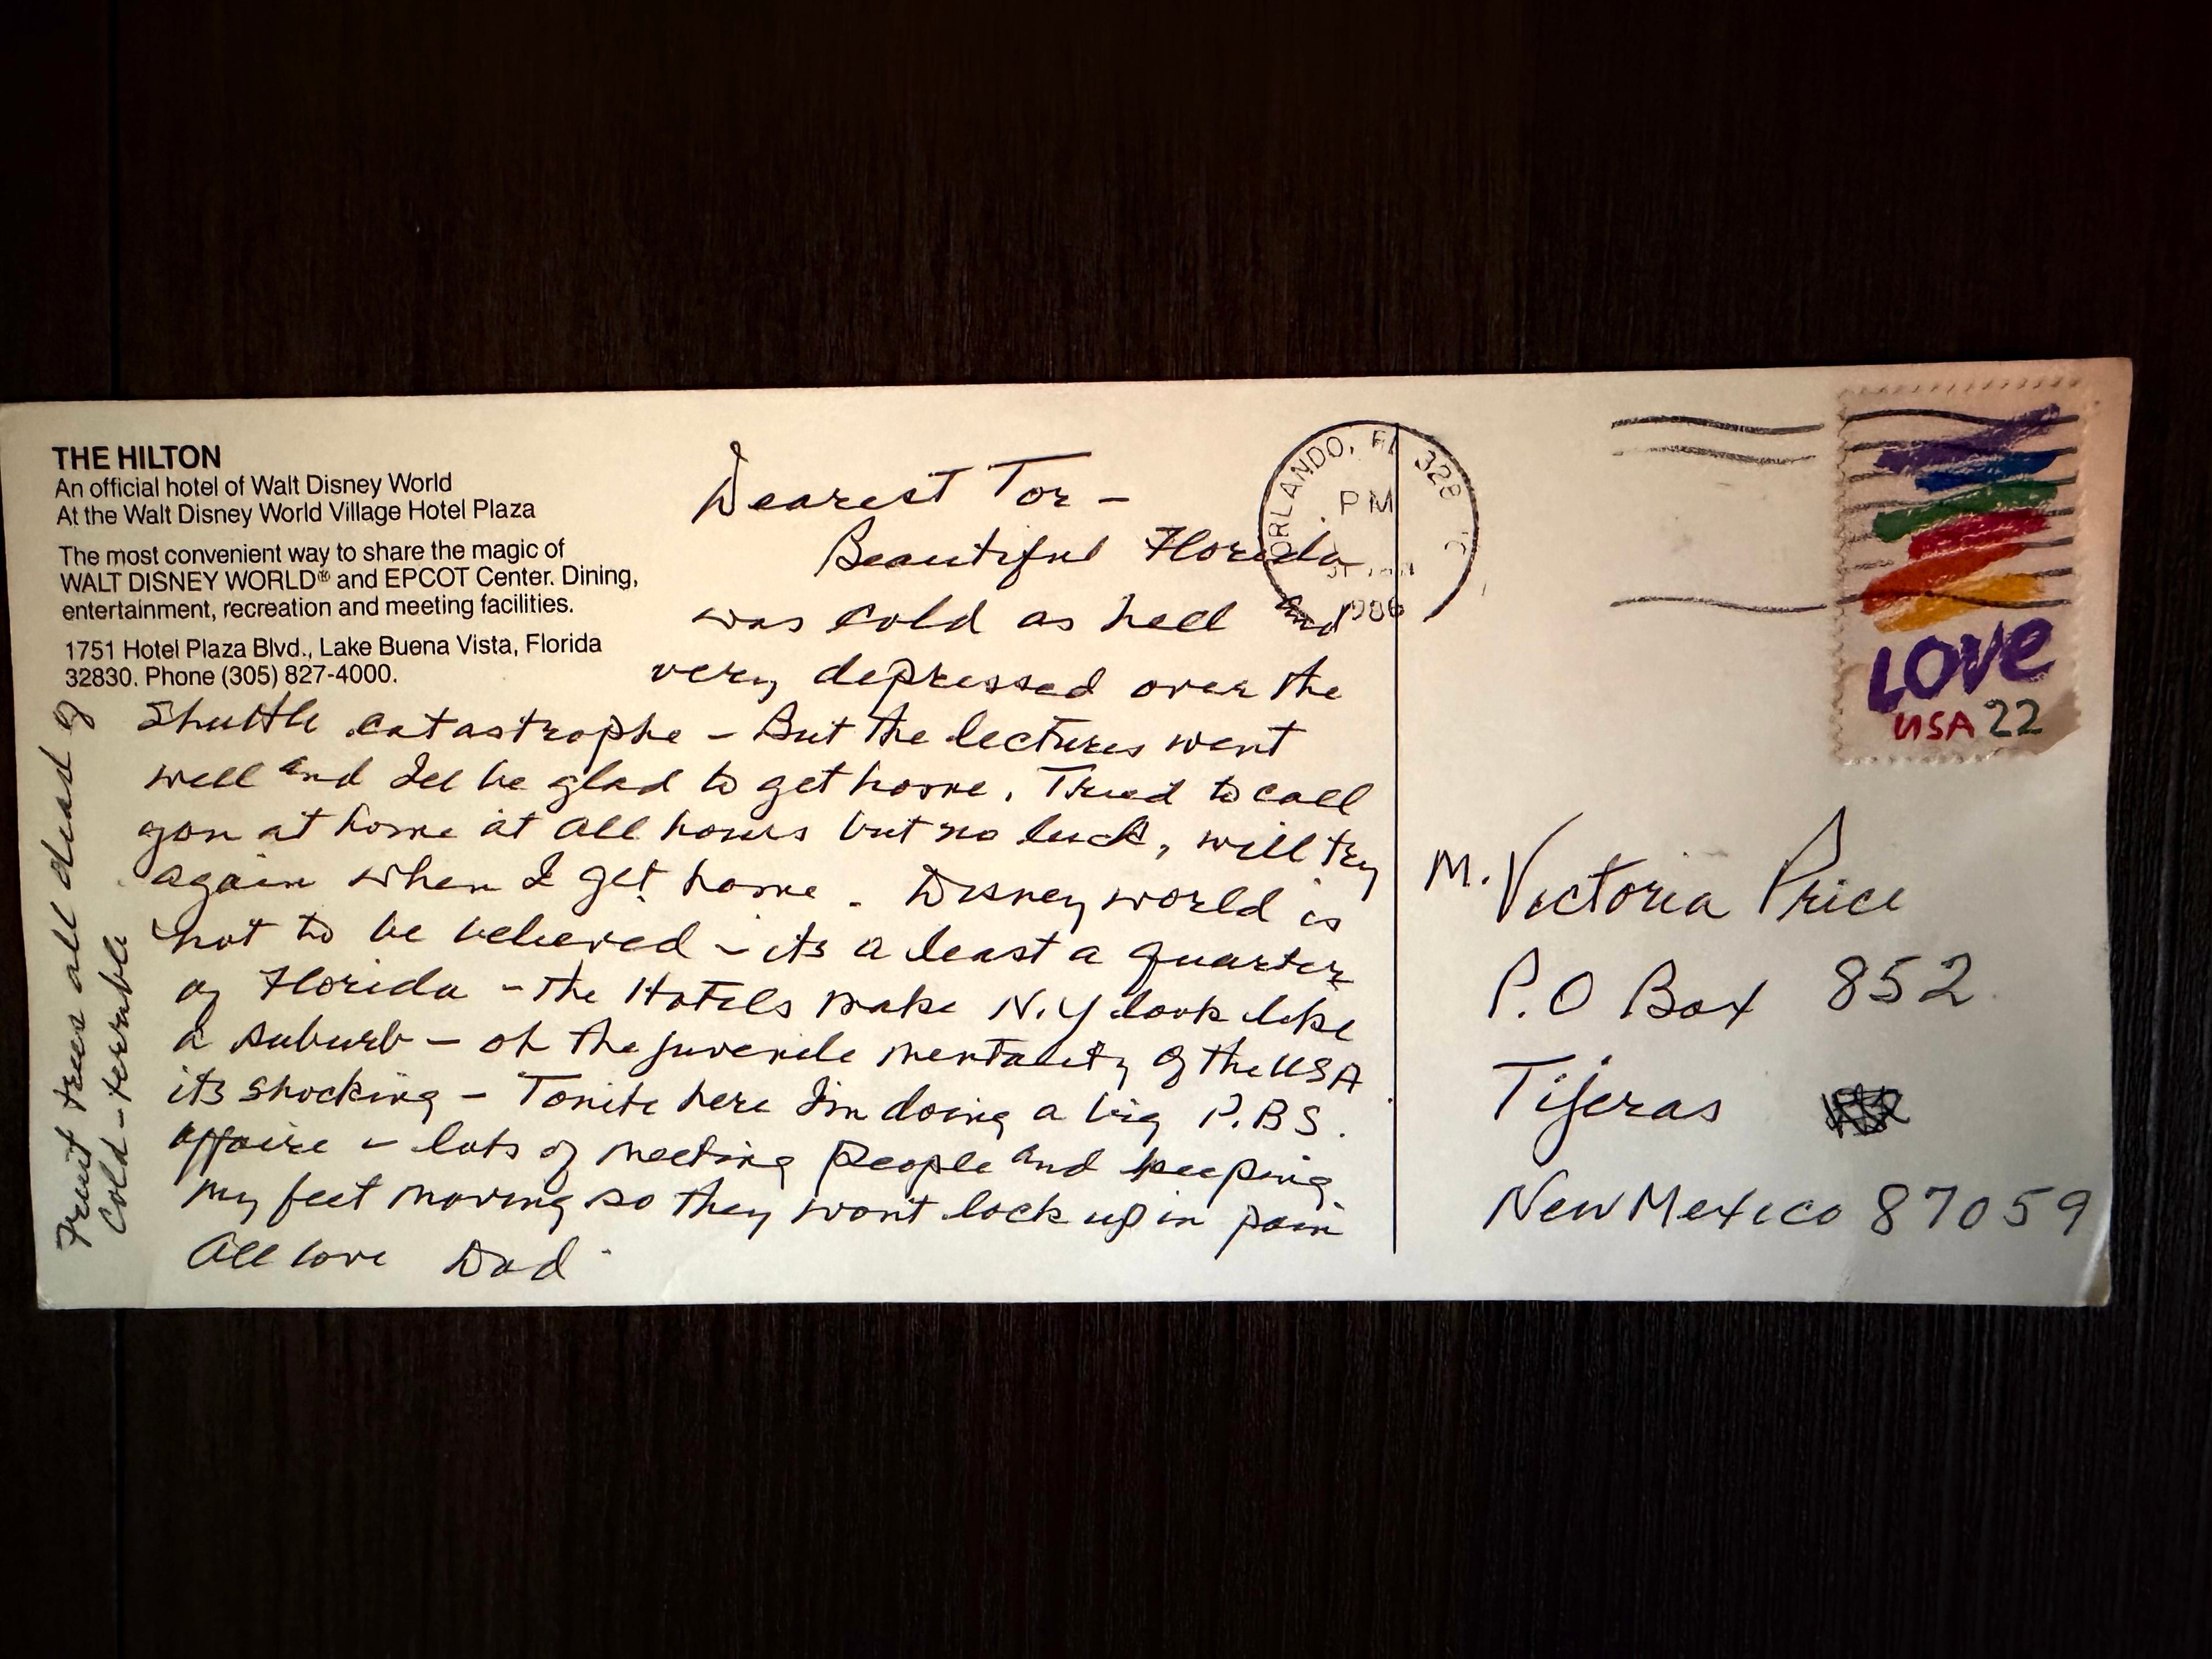 THE HILTON
An official hotel of Walt Disney World
At the Walt Disney World Village Hotel Plaza
The most convenient way to share the magic of
WALT DISNEY WORLD® and EPCOT Center. Dining,
entertainment, recreation and meeting facilities.
1751 Hotel Plaza Blvd., Lake Buena Vista, Florida
32830. Phone (305) 827-4000.
Dearest Tor -
Beautiful Florida
was cold as hell and
very depressed over the
Shuttle catastrophe - But the lectures went
well and Ill be glad to get home. Tried to call
you at home at all hours but no luck, will try
again when I get home. Disney world is
not to be believed - its a least a quarter
of Florida - the Hotels make N.Y look like
a suburb - oh the juvenile mentality of the USA
its shocking - Tonite here Im doing a big P.BS.
affaire - lots of meeting people and keeping
my feet moving so they wont lock up in pain
All love Dad
Fruit trees all dead of
cold - terrible
ORLANDO, FL 328
PM
1986
LOVE
USA 22
M. Victoria Price
P.O Box 852
Tijeras
New Mexico 87059